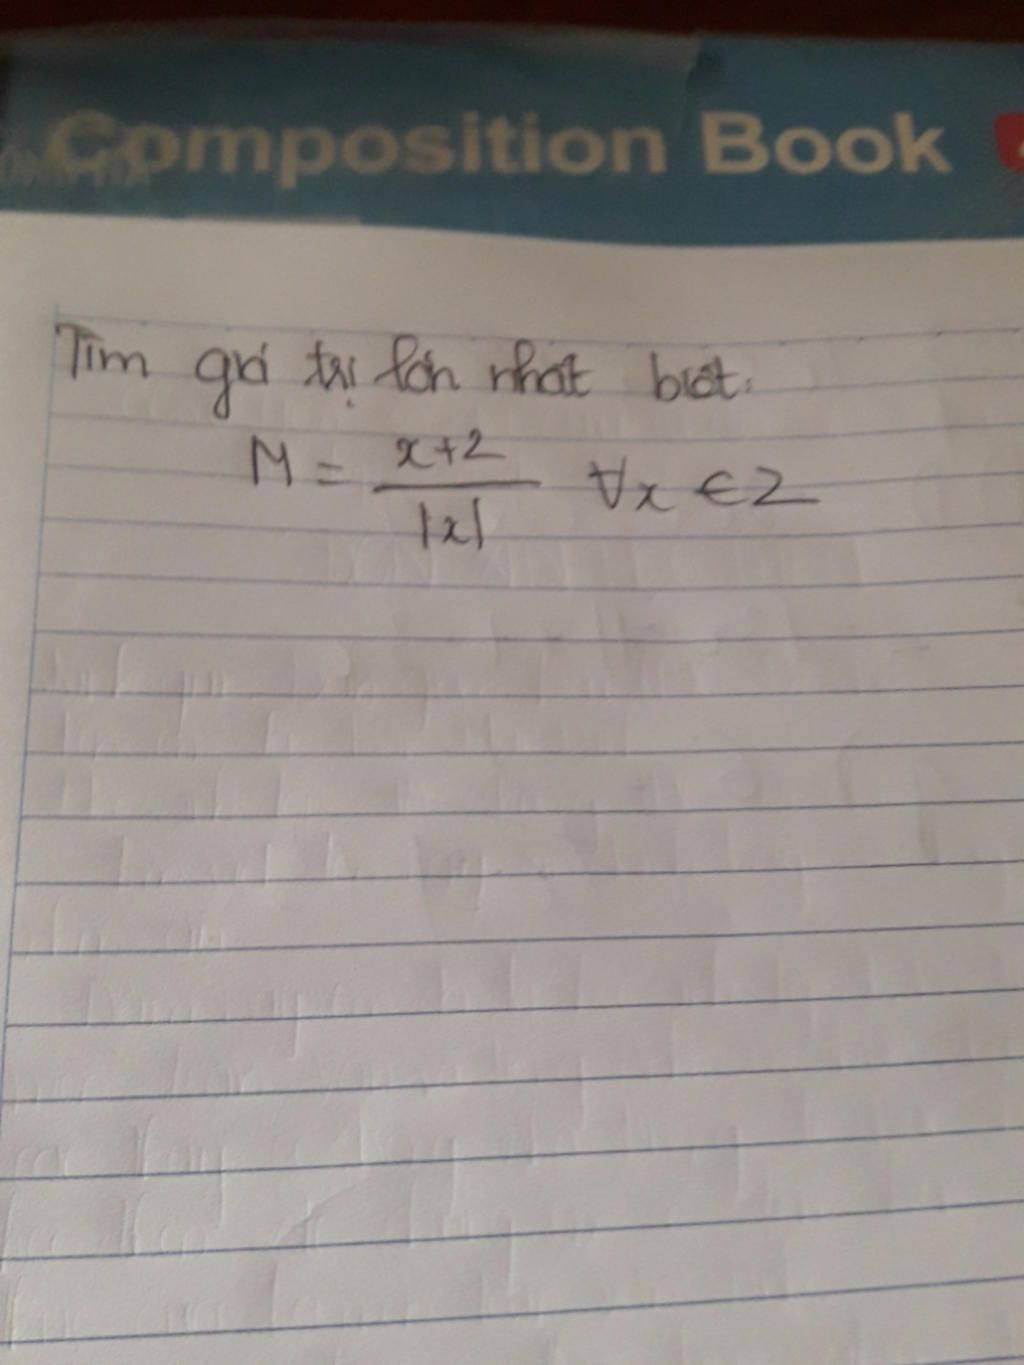 Composition Book
Tìm giá trị lớn nhất biết:
M = x+2 / |x| ∀x ∈ Z